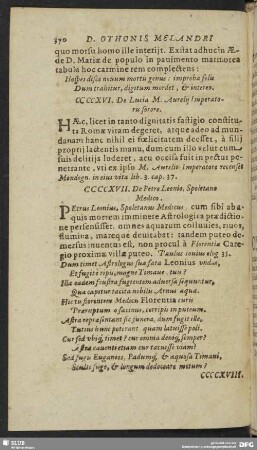 370 D. OTHONIS MELANDRI
quo morsu homo ille interijt. Exstat adhuc in Æ-
de D. Mariæ de populo in pauimento marmorea
tabula hoc carmine rem complectens:
Hospes disce nouum mortis genus: improba felis
Dum trahitur, digitum mordet, & intereo.
CCCCXVI. De Lucia M. Aurelij Imperato-
ris sorore.
HÆc, licet in tanto dignitatis fastigio constitu-
ta Romæ vitam degeret, atque adeo ad mun-
danam hanc nihil ei fœlicitatem deesset, à filij
proprij lactentis manu, dum cum illo velut cum
suis delitijs luderet, acu occisa fuit in pectus pe-
netrante, vti ex ipso M. Aurelio Imperatore recenset
Mondogn. in eius vita lib. 3. cap. 37.
CCCCXVII. De Petro Leonio, Spoletano
Medico.
PEtrus Leonius, Spoletanus Medicus, cum sibi ab a-
quis mortem imminere Astrologica prædictio-
ne persensisset, omnes aquarum colluuies, riuos,
flumina, mareque deuitabat: tandem puteo de-
mersus inuentus est, non procul à Florentia Care-
gio proxima villæ puteo. Paulus Iouius elog. 35.
Dum timet Astrologus sua fata Leonius vndas,
Et fugit è ripis, magne Timaue, tuis?
Illa eadem frustra fugientem aduersa sequuntur,
Qua capitur tacita nobilis Arnus aqua.
Hic tu florentem Medicis Florentia turris
Præruptum à facinus, corripis in puteum.
Astra repræsentant sic funera, dum fugit ille,
Tutius hunc poterant quam latuisse poli.
Cur sed vbique, timet? cur omnia denique, semper?
Astra cauent etiam cur tacuisse viam?
Sed fugis Euganeos, Patauumque, & aquosa Timaui,
Scilicet fuge, & longum dedocuere metum?
CCCCXVIII.
SLUB